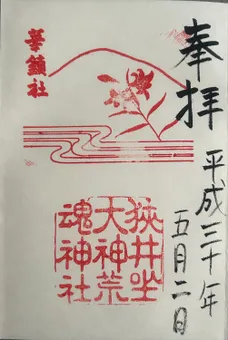 奉拝
平成三十年
五月二日
華鎮社
狭井坐
大神荒
魂神社